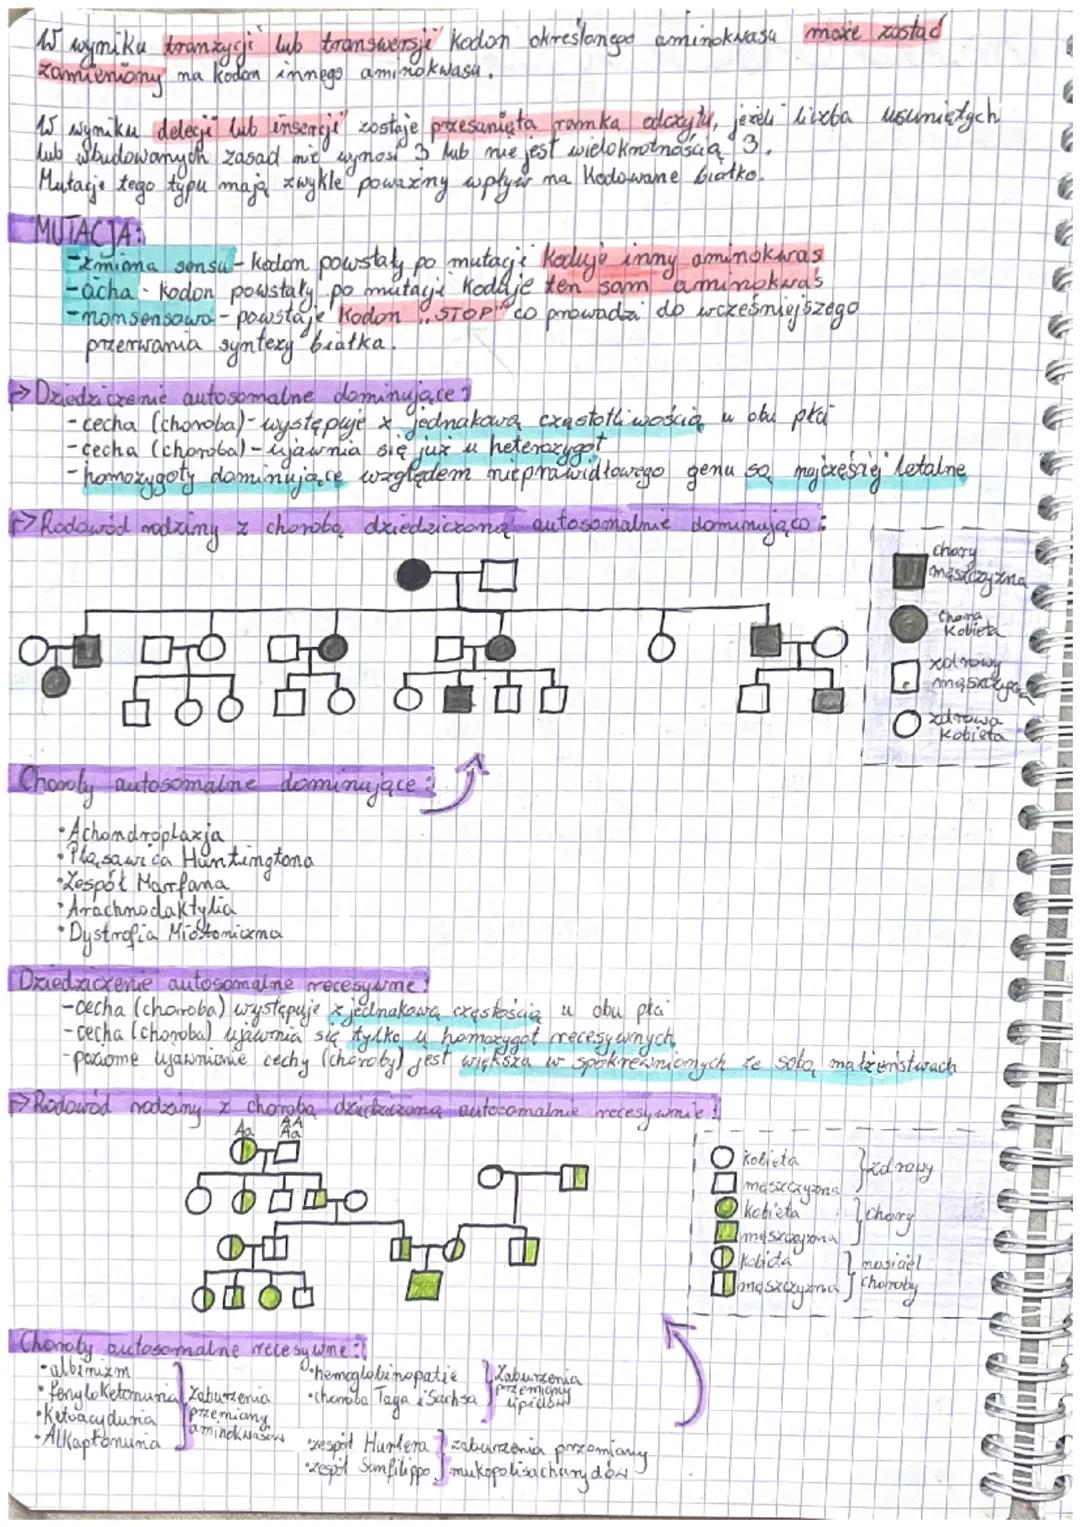 W wyniku tranzycji lub transwersji kodon określonego aminokwasu może zostać
zamieniony na kodon innego aminokwasu.
W wyniku delecji lub insercji zostaje przesunięta ramka odczytu, jeżeli liczba usuniętych
lub wbudowanych zasad nie wynosi 3 lub nie jest wielokrotnością 3.
Mutacje tego typu mają zwykle poważny wpływ na kodowane białko.
MUTACJA:
-zmiana sensu - kodon powstały po mutacji koduje inny aminokwas
-cicha - kodon powstały po mutacji koduje ten sam aminokwas
-nonsensowa - powstaje kodon "STOP" co prowadzi do wcześniejszego
przerwania syntezy białka.
→ Dziedziczenie autosomalne dominujące:
-cecha (choroba) - występuje z jednakową częstotliwością u obu płci
-cecha (choroba) - ujawnia się już u heterozygot
-homozygoty dominujące względem nieprawidłowego genu są najczęściej letalne
→ Rodowód rodziny z chorobą dziedziczoną autosomalnie dominująco:
chory
mężczyzna
chora
kobieta
zdrowy
mężczyzna
zdrowa
kobieta
Choroby autosomalne dominujące:
•Achondroplazja
•Pląsawica Huntingtona
•Zespół Marfana
•Arachnodaktylia
•Dystrofia Miotoniczna
Dziedziczenie autosomalne recesywne:
-cecha (choroba) występuje z jednakową częstością u obu płci
-cecha (choroba) ujawnia się tylko u homozygot recesywnych
-poziome ujawnianie cechy (choroby) jest większa w spokrewnionych ze sobą małżeństwach
→ Rodowód rodziny z chorobą dziedziczoną autosomalnie recesywnie:
Aa AA
Aa
kobieta
mężczyzna } zdrowy
kobieta
mężczyzna } chory
kobieta
mężczyzna } nosiciel choroby
Choroby autosomalne recesywne:
•albinizm
•fenyloketonuria
•Ketoacyduria
•Alkaptonuria
zaburzenia
przemiany
aminokwasów
•hemoglobinopatie
•choroba Taya i Sachsa
Zaburzenia
przemiany
lipidów
•zespół Hurlera
•zespół Sanfilippo
zaburzenia przemiany
mukopolisacharydów